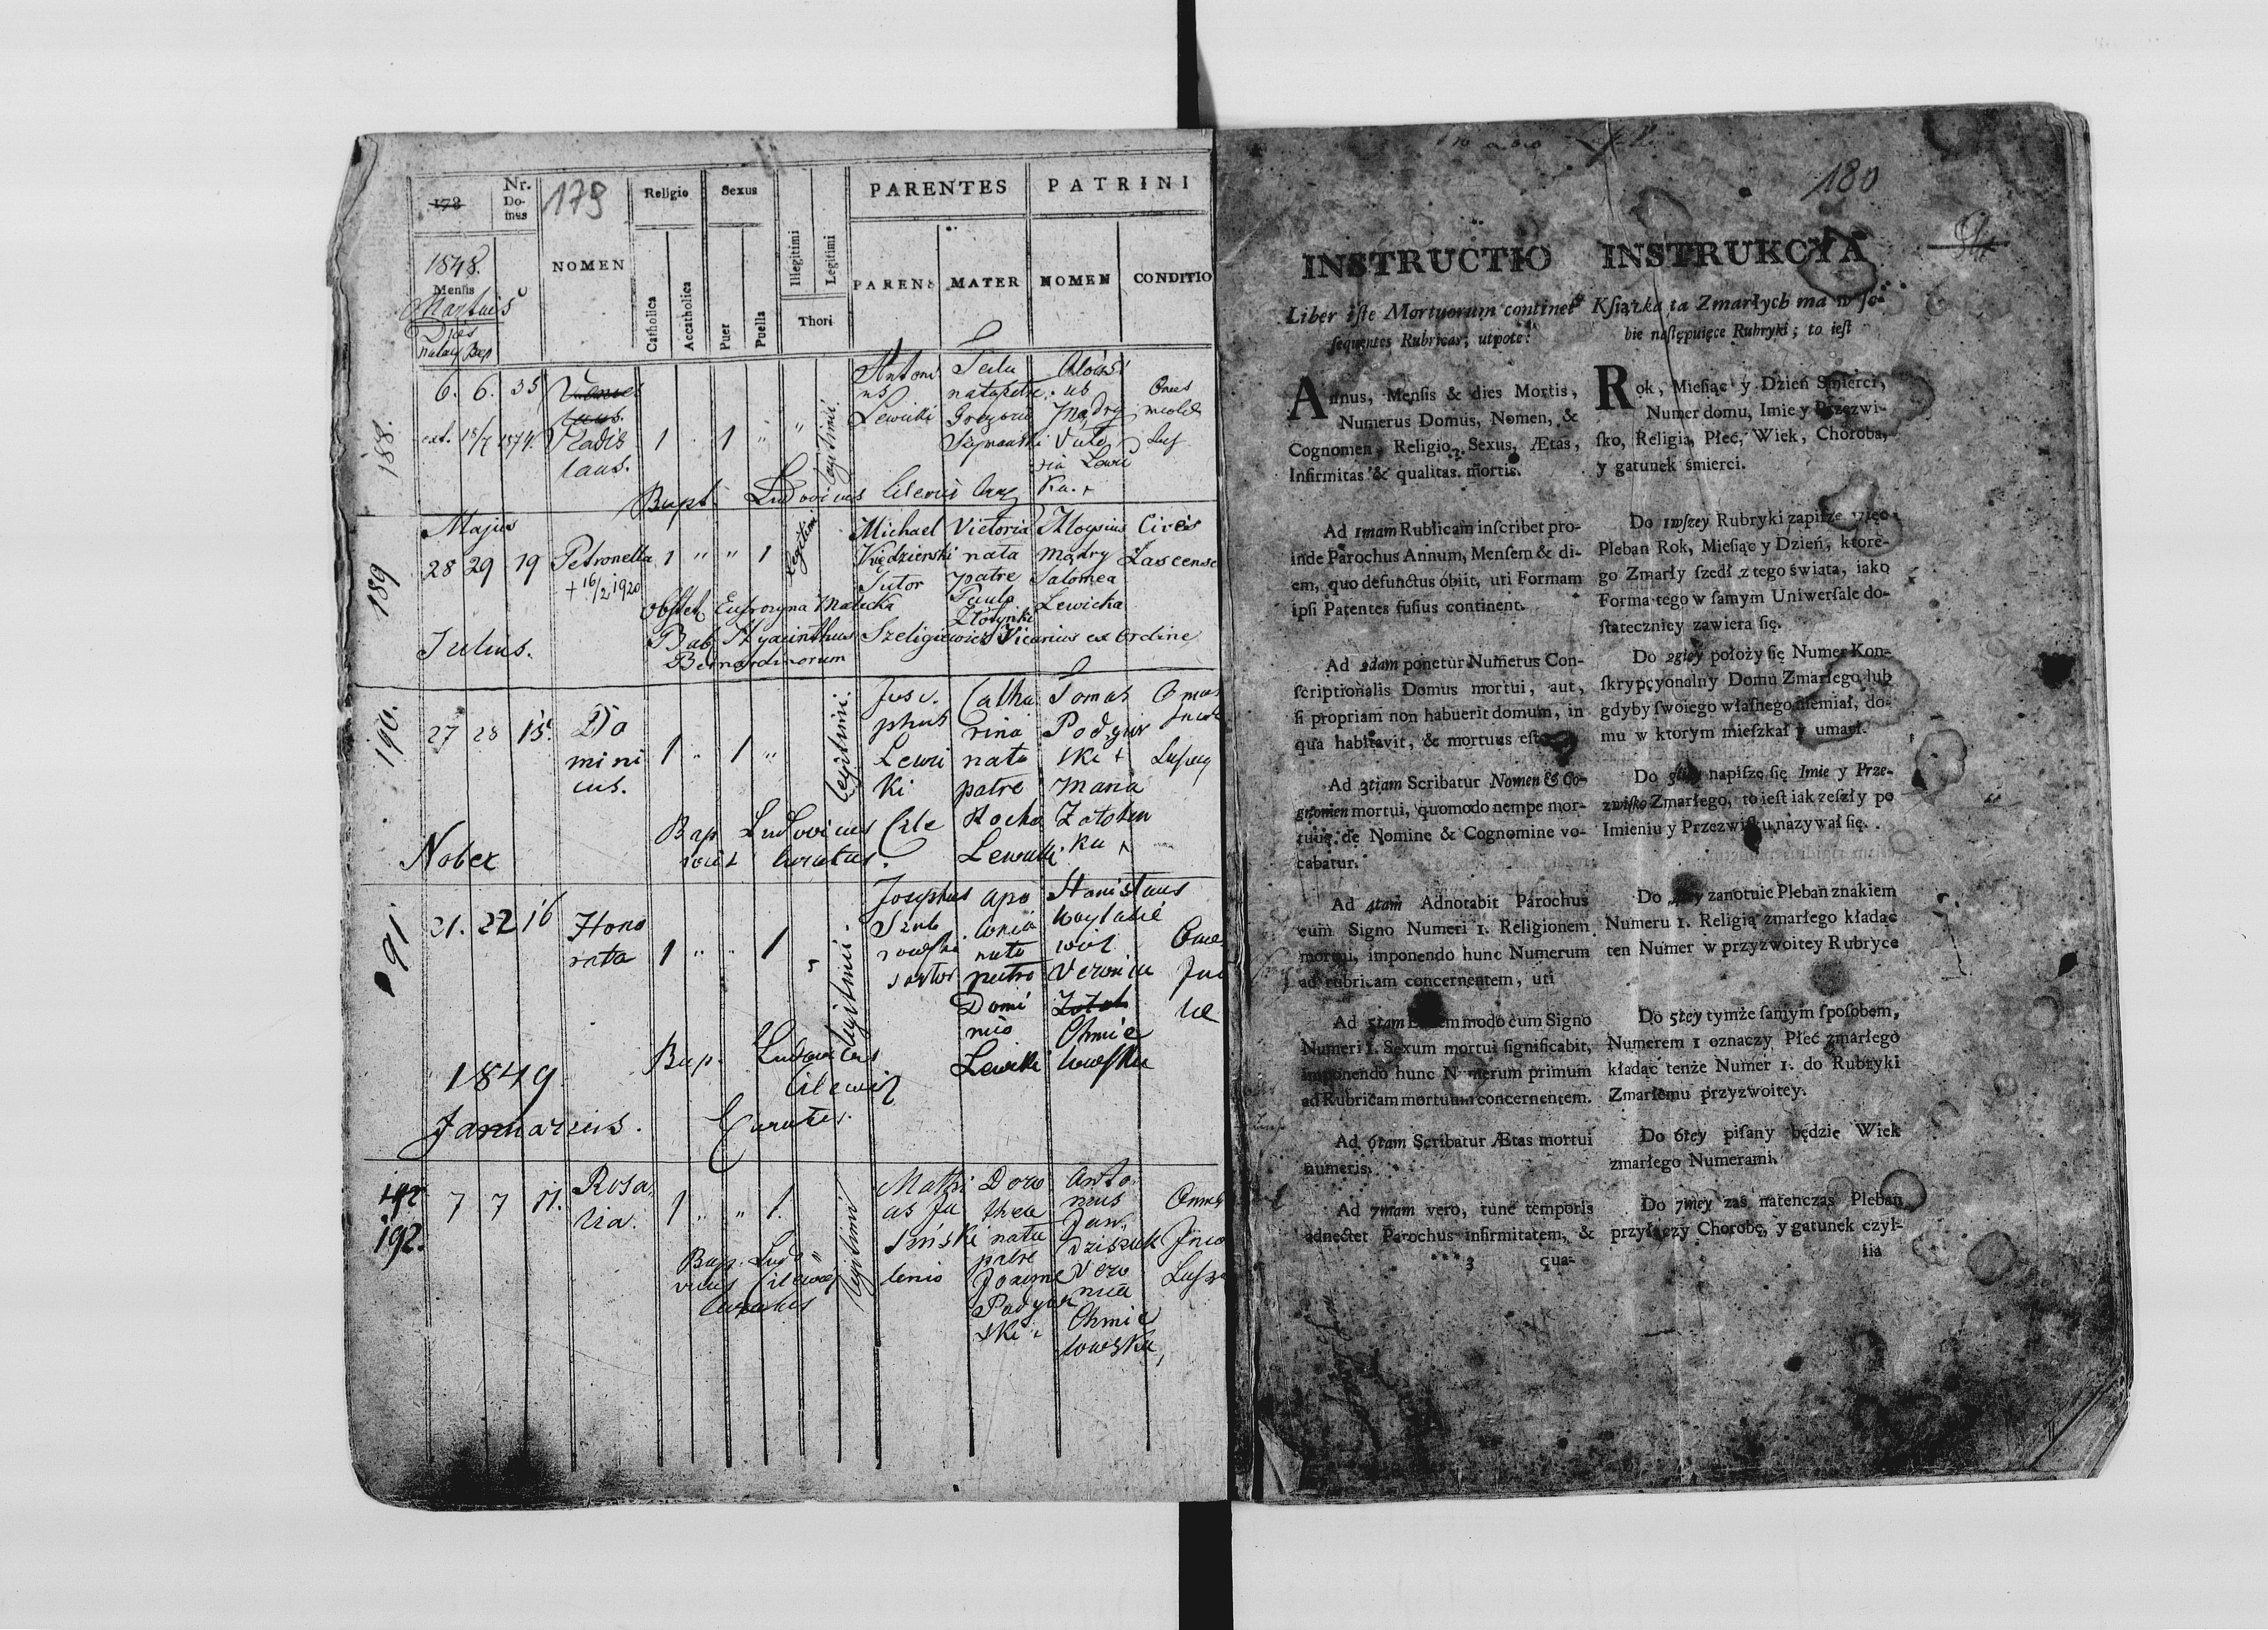 172
Nr. Domus
179
Religio
Sexus
Illegitimi
Legitimi
PARENTES
PATRINI
1848.
Mensis
Martius
Dies
natus Bap
NOMEN
Catholica
Accatholica
Puer
Puella
Thori
PARENS
MATER
NOMEN
CONDITIO
188.
6. 6. 35
ext. 18/7 1874.
Vladis
laus.
1 " 1 " "
legitimi.
Antoni
us
Lewicki
Tecla
nata patre
Gregorio
Szymanski
Aloisi
us
Mądry
Victo
ria Lewic
ka. +
Omes
Bapt. Ludovicus
189
Majus
28 29 19 Petronella 1 " " 1 legitimi
+ 16/2 1920
Michael
Kędzierski
Sutor
Victoria
nata
patre
Paulo
Aloysius
Mądry
Salomea
Lewicka
Cives
Lascense
Obstet. Eufrozyna Małecka
Bap. Hyacinthus Szeligiewicz Vicarius ex Ordine
Bernardinorum
Julius.
190.
27 28 15.
Do
mini
cus.
1 " 1 "
legitimi.
Jose
phus
Lewi
ki
Catha
rina
nata
patre
Rocho
Lewicki
Tomas
Podgór
ski +
Maria
Omes
Bap. Ludovicus
Curatus.
Nober
191
21. 22 16
Hono
rata
1 " " 1
legitimi.
Josephus
sartor
Apo
lonia
nata
patre
Domi
nico
Lewicki
Stanislaus
Veronica
Chmie
lowska
Omes
Bap. Ludovicus
Curatus.
1849
Januarius.
192
192.
7 7 11.
Rosa
lia.
1 " " 1.
legitimi
Mathi
as Ja
siński
Doro
thea
nata
patre
Joanne
Podgór
ski +
Anto
nius
Jan
dziszek
Vero
nica
Chmie
lowska,
Omnes
Bap. Ludo
vicus
Curatus
180
94
INSTRUCTIO
Liber iste Mortuorum continet
sequentes Rubricas; utpote:
Annus, Mensis & dies Mortis,
Numerus Domus, Nomen, &
Cognomen, Religio, Sexus, Ætas,
Infirmitas & qualitas mortis.
Ad 1mam Rublicam inscribet pro-
inde Parochus Annum, Mensem & di-
em, quo defunctus obiit, uti Formam
ipsi Patentes fusius continent.
Ad 2dam ponetur Numerus Con-
scriptionalis Domus mortui, aut,
si propriam non habuerit domum, in
qua habitavit, & mortuus est.
Ad 3tiam Scribatur Nomen & Co-
gnomen mortui, quomodo nempe mor-
tuus de Nomine & Cognomine vo-
cabatur.
Ad 4tam Adnotabit Parochus
cum Signo Numeri 1. Religionem
mortui, imponendo hunc Numerum
ad rubricam concernentem, uti
Ad 5tam Eodem modo cum Signo
Numeri 1. Sexum mortui significabit,
imponendo hunc Numerum primum
ad Rubricam mortuum concernentem.
Ad 6tam Scribatur Ætas mortui
numeris.
Ad 7mam vero, tunc temporis
adnectet Parochus infirmitatem, &
* * * 3 qua-
INSTRUKCYA
Książka ta Zmarłych ma w so-
bie następuiące Rubryki; to iest
Rok, Miesiąc y Dzień Śmierci,
Numer domu, Imie y Przezwi-
sko, Religia, Płeć, Wiek, Choroba,
y gatunek śmierci.
Do 1wszey Rubryki zapisze więc
Pleban Rok, Miesiąc y Dzień, ktore-
go Zmarły szedł z tego świata, iako
Forma tego w samym Uniwersale do-
stateczniey zawiera się.
Do 2giey położy się Numer Kon-
skrypcyonalny Domu Zmarłego lub
gdyby swoiego własnego niemiał, do-
mu w ktorym mieszkał y umarł.
Do 3ciey napisze się Imie y Prze-
zwisko Zmarłego, to iest iak zeszły po
Imieniu y Przezwisku nazywał się.
Do 4tey zanotuie Pleban znakiem
Numeru 1. Religią zmarłego kładąc
ten Numer w przyzwoitey Rubryce
Do 5tey tymże samym sposobem,
Numerem 1 oznaczy Płeć zmarłego
kładąc tenże Numer 1. do Rubryki
Zmarłemu przyzwoitey.
Do 6tey pisany będzie Wiek
zmarłego Numerami.
Do 7mey zaś natenczas Pleban
przyłączy Chorobę, y gatunek czyl-
lia